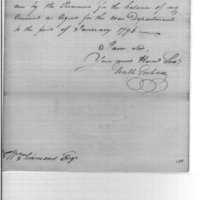 me by the Treasurer for the balance of my
Account as Agent for the War Department
to the first of January 1796 —
I am Sir,
Your most Humb Serv
Nath Gorham
Wm Simmons Esqr